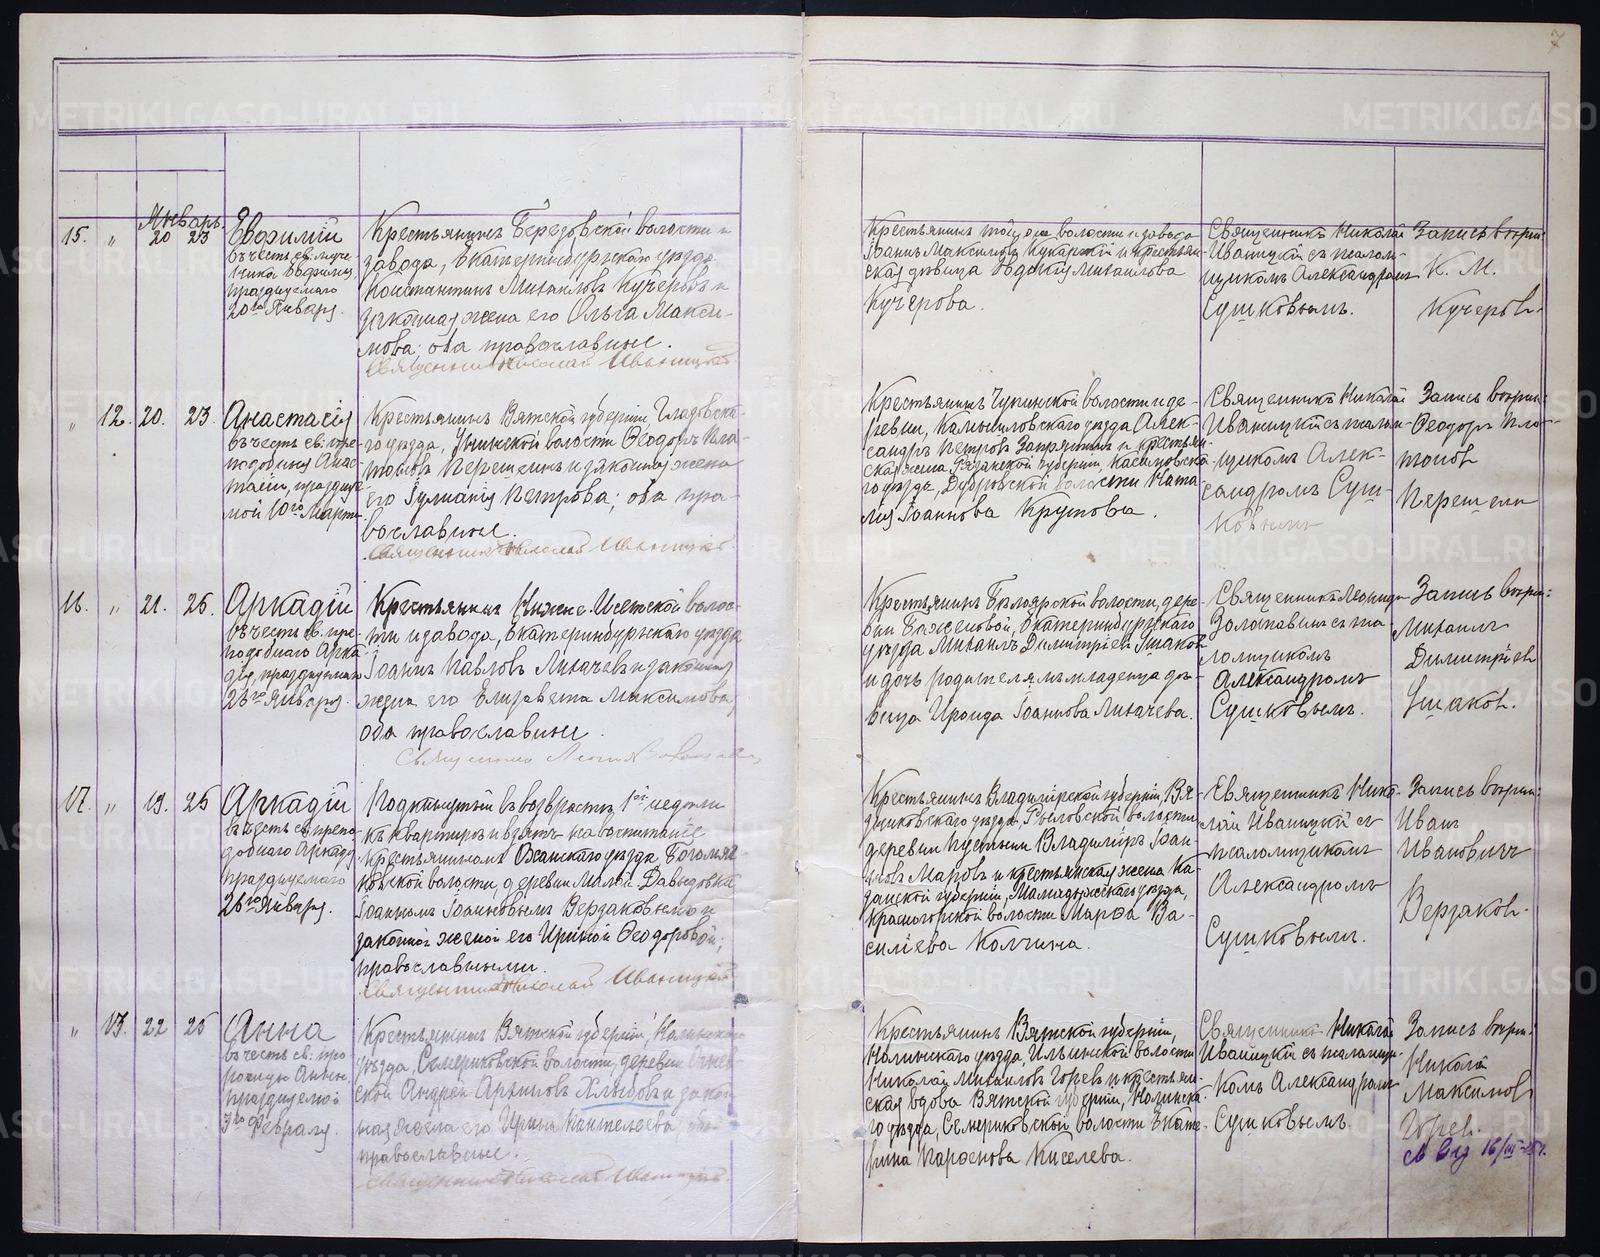 7
Январь
15. " 20 23 Евфимій
въ честь св. муче-
ника Евфимія,
празднуемаго
20го Января.
Крестьянинъ Березовской волости и
завода, Екатеринбургскаго уѣзда
Константинъ Михаиловъ Кучеровъ и
законная жена его Ольга Макси-
мова; оба православные.
Священникъ Николай Иваницкій
Крестьянинъ той же волости и завода
Іоаннъ Максимовъ и крестьян-
ская вдова Михаилова
Кучерова.
Священникъ Николай
Иваницкій съ псалом-
щикомъ Александромъ
Сушковымъ.
Запись вѣрна:
К. М.
Кучеровъ.
" 12. 20. 23 Анастасія
въ честь св. пре-
подобныя Анас-
тасіи, праздуе-
мой 10го Марта
Крестьянинъ Вятской губерніи, Глазовска-
го уѣзда, Унинской волости Ѳеодоръ Пла-
тоновъ Перешеинъ и законная жена
его Іуліанія Петрова; оба пра-
вославные.
Священникъ Николай Иваницкій.
Крестьянинъ Чупинской волости и де-
ревни, Камышловскаго уѣзда Алек-
сандръ Петровъ и крестьян-
ская жена Рязанской губерніи, Касимовска-
го уѣзда, Дубровской волости Ната-
лія Іоаннова Крутова.
Священникъ Николай
Иваницкій съ псалом-
щикомъ Алек-
сандромъ Суш-
ковымъ
Запись вѣрна:
Ѳеодоръ Пла-
тонов
Перешеин
16. " 21. 25. Аркадій
въ честь св. пре-
подобнаго Арка-
дія, празднуемаго
26го Января.
Крестьянинъ Нижне-Исетской волос-
ти и завода, Екатеринбургскаго уѣзда
Іоаннъ Павловъ Лихачевъ и законная
жена его Елизавета Максимова,
оба православные.
Священникъ
Крестьянинъ Бѣлоярской волости, дере-
вни Баженовой, Екатеринбургскаго
уѣзда Михаилъ Димитріевъ Ушаковъ
и дочь родителямъ младенца дѣ-
вица Ираида Іоаннова Лихачева.
Священникъ Леонидъ
съ пса-
ломщикомъ
Александромъ
Сушковымъ.
Запись вѣрна:
Михаилъ
Димитріев
Ушаков.
17. " 19. 25 Аркадій
въ честь св. препо-
добнаго Аркадія
празднуемаго
26го Января.
Подкинутый въ возрастѣ 1ой недѣли
къ квартирѣ и взятъ на воспитаніе
крестьяниномъ Оханскаго уѣзда, Богомяг-
ковской волости, деревни Малой Давыдовки
Іоанномъ Іоанновымъ Верзаковымъ и
законной женой его Ириной Ѳеодоровой;
православными.
Священникъ Николай Иваницкій
Крестьянинъ Владимірской губерніи, Вя-
зниковскаго уѣзда, волости
деревни Пустыни Владиміръ Іоан-
новъ Маровъ и крестьянская жена Ка-
занской губерніи, Мамадышскаго уѣзда,
Красногорской волости Марѳа Ва-
силіева Колчина.
Священникъ Нико-
лай Иваницкій съ
псаломщикомъ
Александромъ
Сушковымъ.
Запись вѣрна:
Иванъ
Ивановичъ
Верзаков.
" 13. 22 25 Анна
въ честь св. про
рочицы Анны,
празднуемой
3го Февраля.
Крестьянинъ Вятской губерніи, Нолинскаго
уѣзда, Семериковской волости, деревни
Андрей Архиповъ Хлыбовъ и закон-
ная жена его Ирина Пантелеева; оба
православные.
Священникъ Николай Иваницкій.
Крестьянинъ Вятской губерніи,
Нолинскаго уѣзда, Ильинской волости
Николай Михаиловъ Горевъ и крестьян-
ская вдова Вятской губерніи, Нолинска-
го уѣзда, Семериковской волости Екате-
рина Парѳенова Киселева.
Священникъ Николай
Иваницкій съ псаломщи-
комъ Александромъ
Сушковымъ.
Запись вѣрна:
Николай
Максимов
Горев.
METRIKI.GASO-URAL.RU